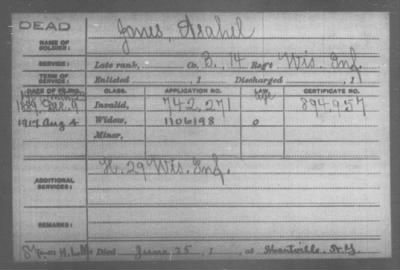 DEAD
NAME OF SOLDIER: Jones, Asahel
SERVICE: Late rank, Co. B, 14 Reg't Wis. Inf.
TERM OF SERVICE: Enlisted , 1 Discharged , 1
DATE OF FILING. CLASS. APPLICATION NO. LAW. CERTIFICATE NO.
Invalid, 742,271 894,957
1917 Aug 4 Widow, 1106198 o
Minor,
ADDITIONAL SERVICES: H. 29 Wis. Inf.
REMARKS:
Died June 25, 1 , at